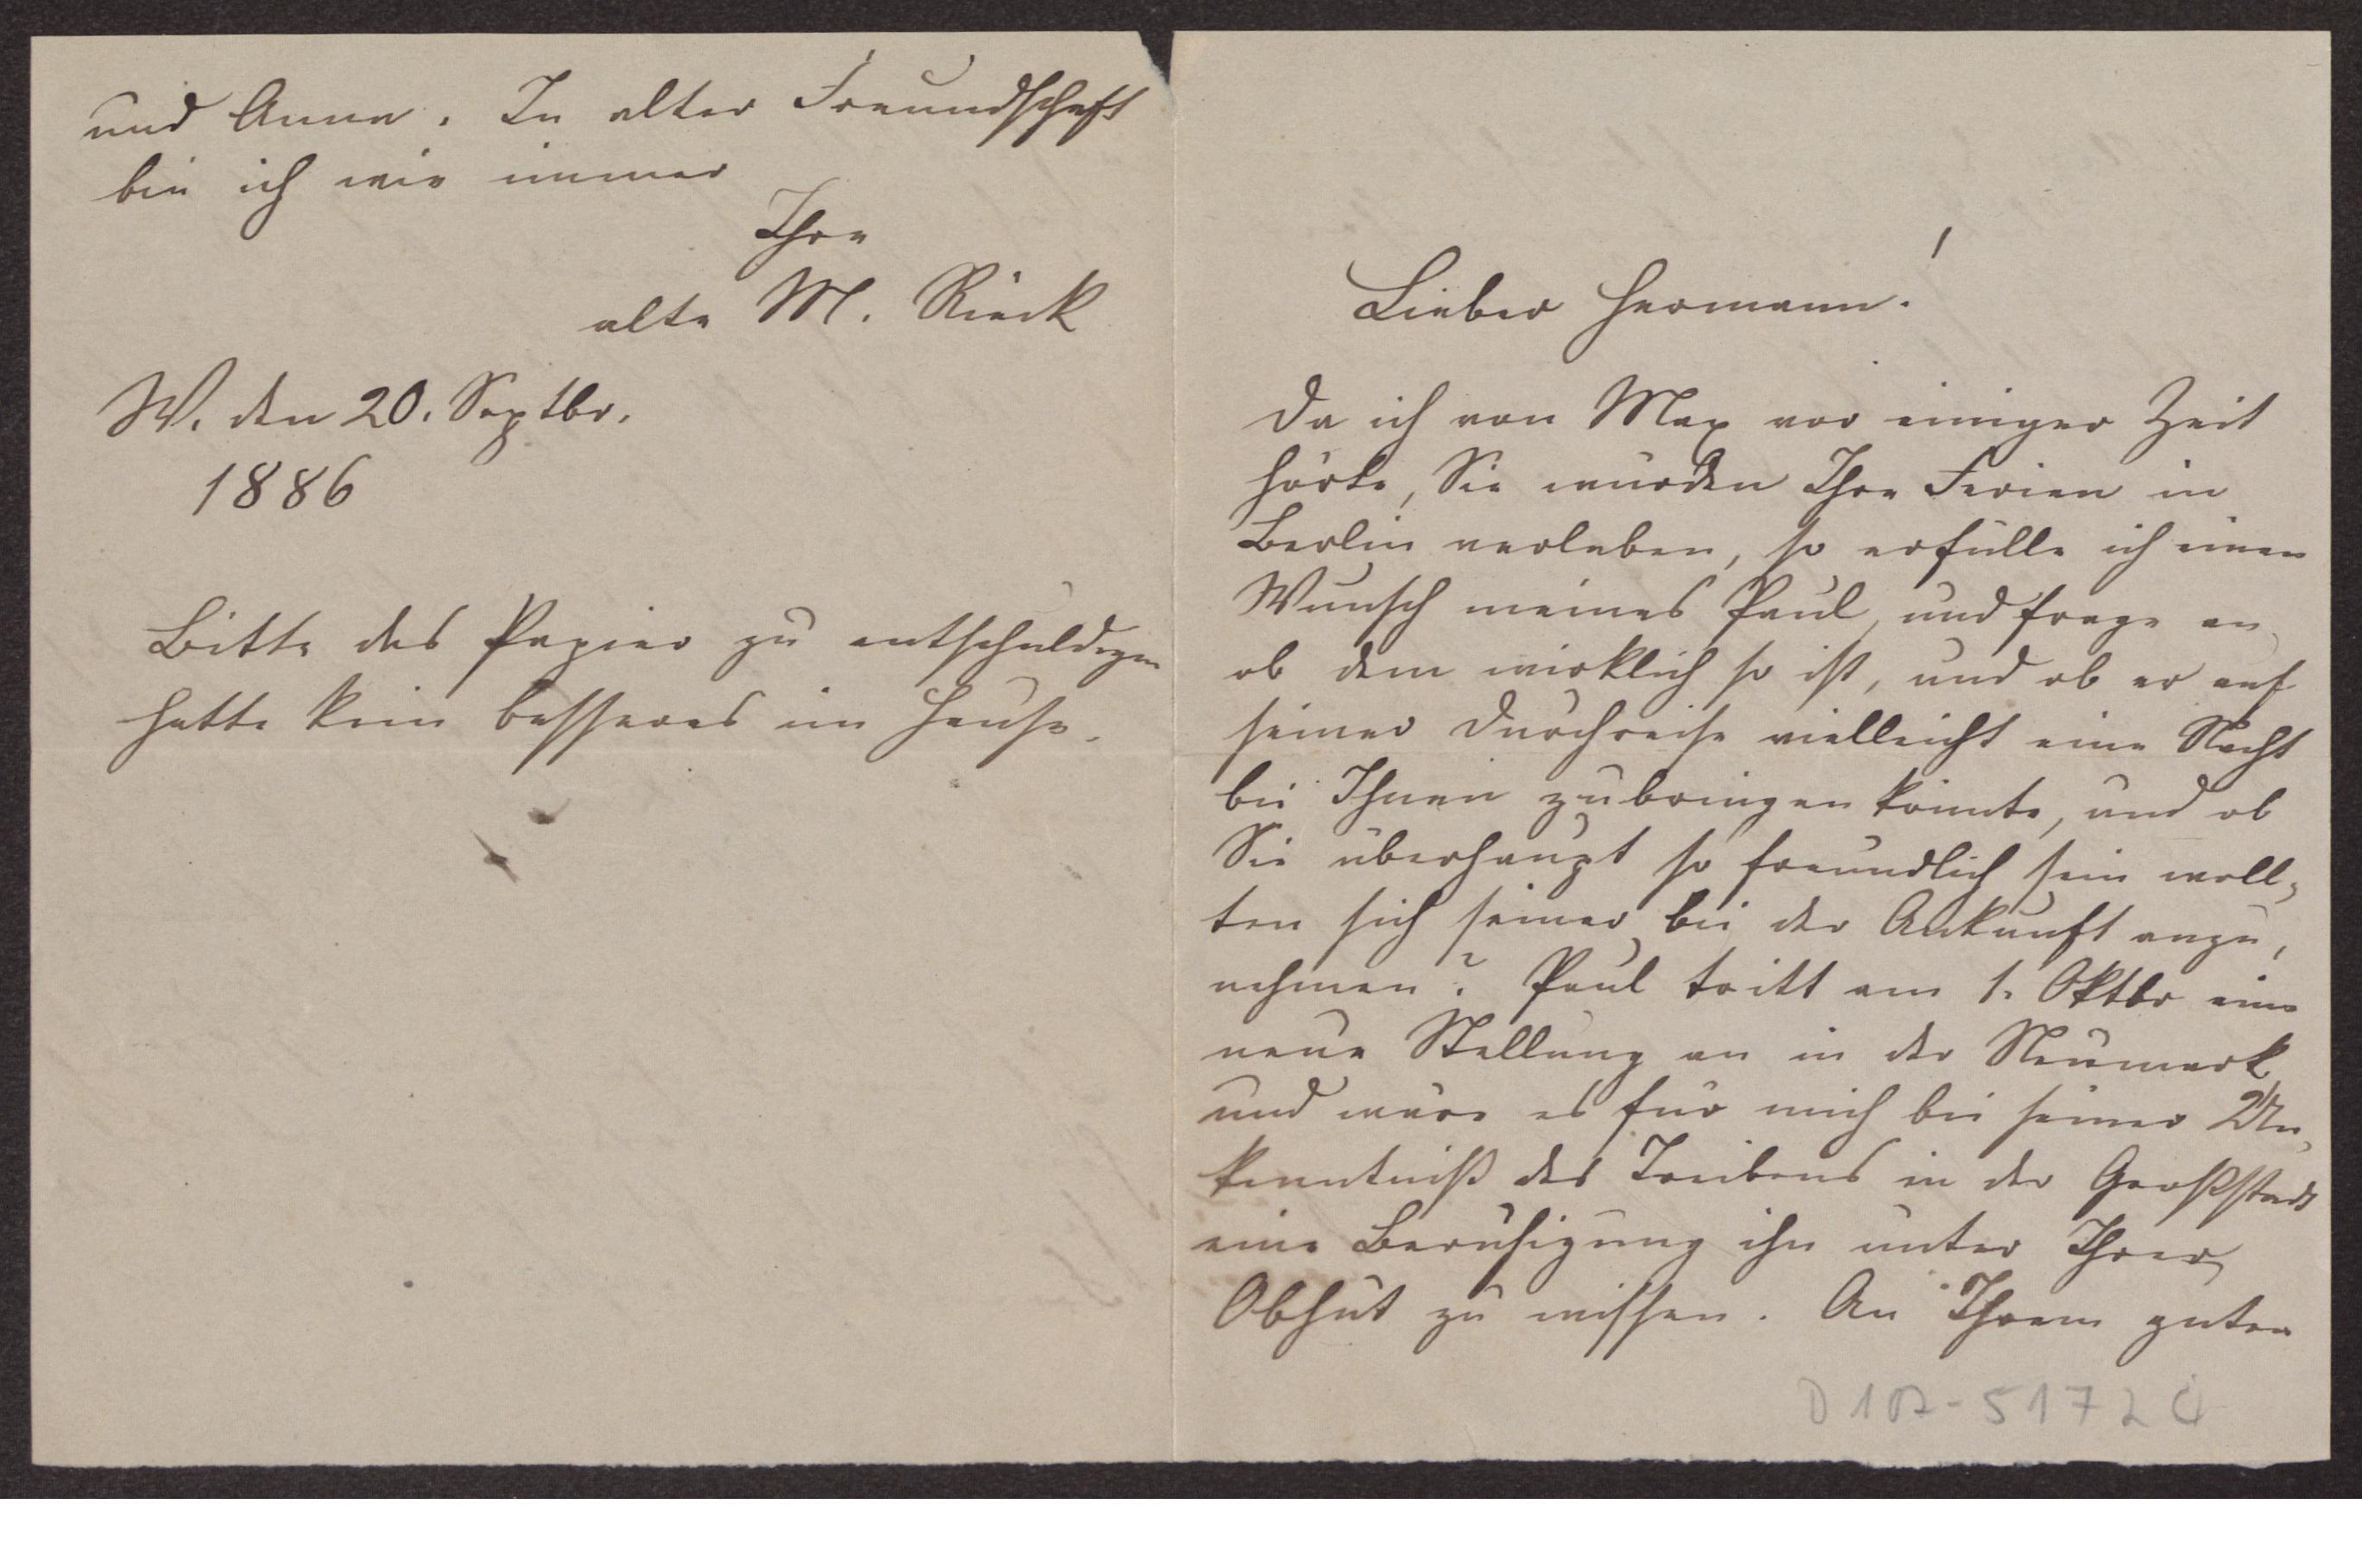 und Anna. In alter Freundschaft
bin ich wie immer
Ihre
alte M. Rieck
W. den 20. Septbr.
1886
Bitte das Papier zu entschuldigen
hatte kein besseres im Hause.
Lieber Hermann!
Da ich von Max vor einiger Zeit
hörte, Sie würden Ihre Ferien in
Berlin verleben, so erfülle ich einen
Wunsch meines Paul, und frage an
ob dem wirklich so ist, und ob er auf
seiner Durchreise vielleicht eine Nacht
bei Ihnen zubringen könnte, und ob
Sie überhaupt so freundlich sein woll-
ten sich seiner bei der Ankunft anzu-
nehmen? Paul tritt am 1. Oktbr eine
neue Stellung an in der Neumark
und wäre es für mich bei seiner Un-
kenntniß des Treibens in der Großstadt
eine Beruhigung ihn unter Ihrer
Obhut zu wissen. An Ihrem guten